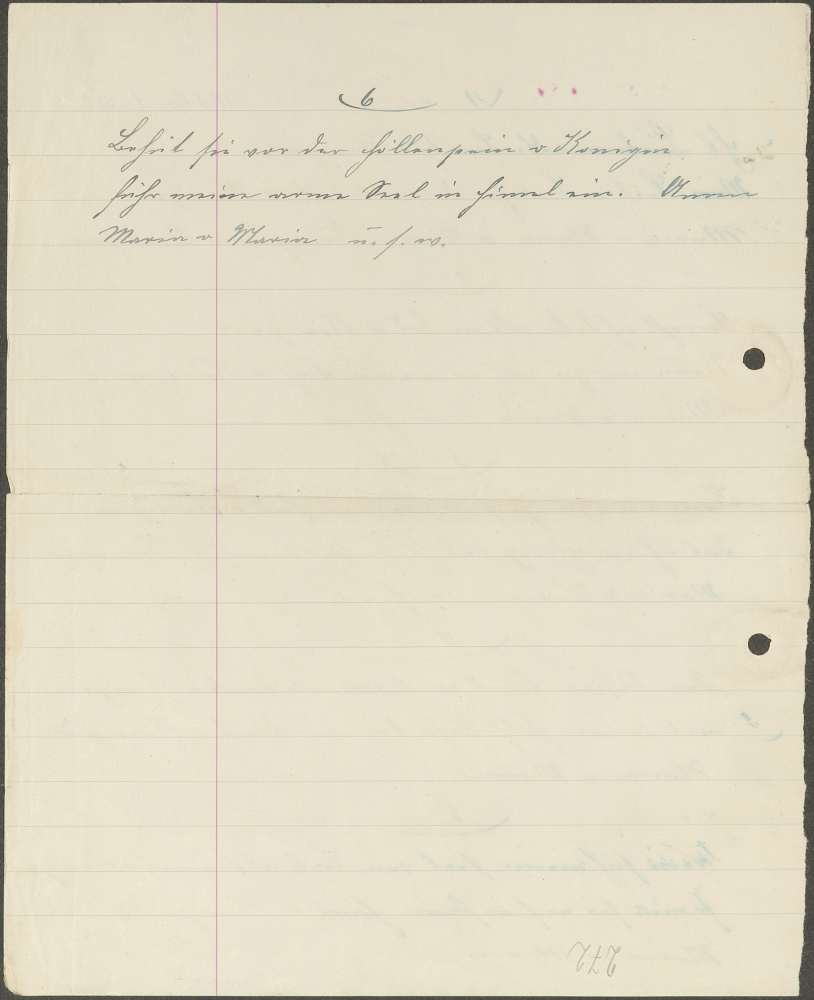 6
Behüt sie vor der Höllenpein o Konigin
führ meine arme Seel in Himel ein. Amen
Maria o Maria u. s. w.
272